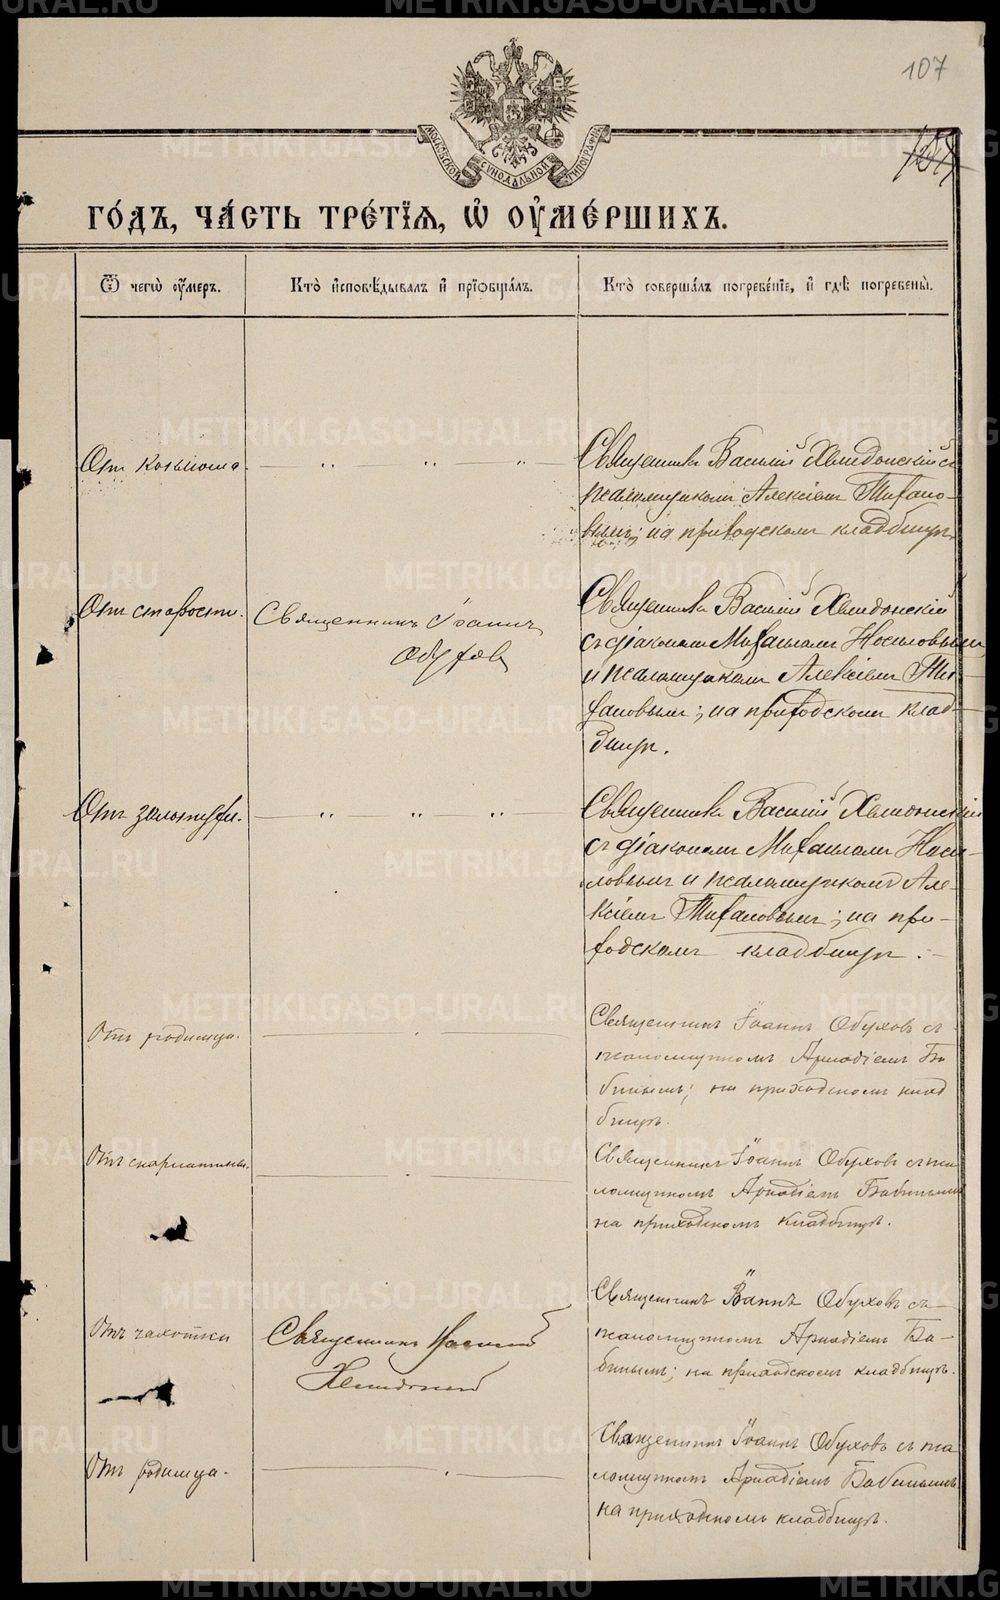 107
МОСКОВСКОЙ СѴНОДАЛЬНОЙ ТИПОГРАФІИ
ГО́ДЪ, ЧА́СТЬ ТРЕ́ТІѦ, Ѡ҆ ОУ҆МЕ́РШИХЪ.
Ѿ чегѡ̀ оу҆́меръ.
Кто̀ и҆сповѣ́дывалъ и҆ прїѡбща́лъ.
Кто̀ соверша́лъ погребе́нїе, и҆ гдѣ̀ погребены̀.
Священникъ Василій Хвидонскій съ
псаломщикомъ Алексіемъ Тихано-
вымъ; на приходскомъ кладбищѣ.
Отъ старости.
Священникъ Іоаннъ
Обухов
Священникъ Василій Хвидонскій
съ діакономъ Михаиломъ Носиловымъ
и псаломщикомъ Алексіемъ Ти-
хановымъ; на приходскомъ клад-
бищѣ.
Отъ золотухи.
Священникъ Василій Хвидонскій
съ діакономъ Михаиломъ Носи-
ловымъ и псаломщикомъ Але-
ксіемъ Тихановымъ; на при-
ходскомъ кладбищѣ.
Отъ родимца.
Священникъ Іоаннъ Обуховъ съ
псаломщикомъ Аркадіемъ Ба
бинымъ; на приходскомъ клад
бищѣ.
Отъ скарлатины.
Священникъ Іоаннъ Обуховъ съ пса
ломщикомъ Аркадіемъ Бабинымъ
на приходскомъ кладбищѣ.
Отъ чахотки
Священникъ Василій
Хвидонский
Священникъ Іоаннъ Обуховъ съ
псаломщикомъ Аркадіемъ Ба-
бинымъ; на приходскомъ кладбищѣ.
Отъ родимца.
Священникъ Іоаннъ Обуховъ съ пса
ломщикомъ Аркадіемъ Бабинымъ
на приходскомъ кладбищѣ.
METRIKI.GASO-URAL.RU